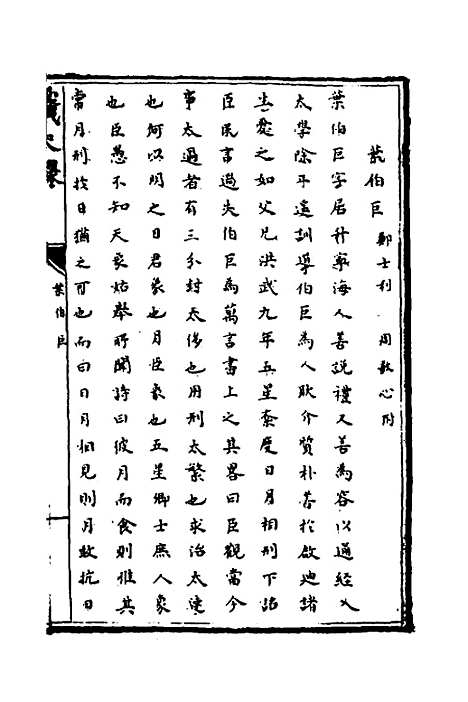 葉伯巨 鄭士利 周敬心附
葉伯巨字居升寧海人善說禮又善為容以通經入
太學除平遥訓導伯巨為人耿介質朴善於啟迪諸
生愛之如父兄洪武九年五星紊度日月相刑下詔
臣民言過失伯巨為萬言書上之其畧曰臣觀當今
事太過者有三分封太侈也用刑太繁也求治太速
也何以明之日君象也月臣象也五星卿士庶人象
也臣愚不知天象姑舉所聞詩曰彼月而食則維其
常月刑於日猶之可也而曰日月相見則月敢抗日
史
葉伯巨